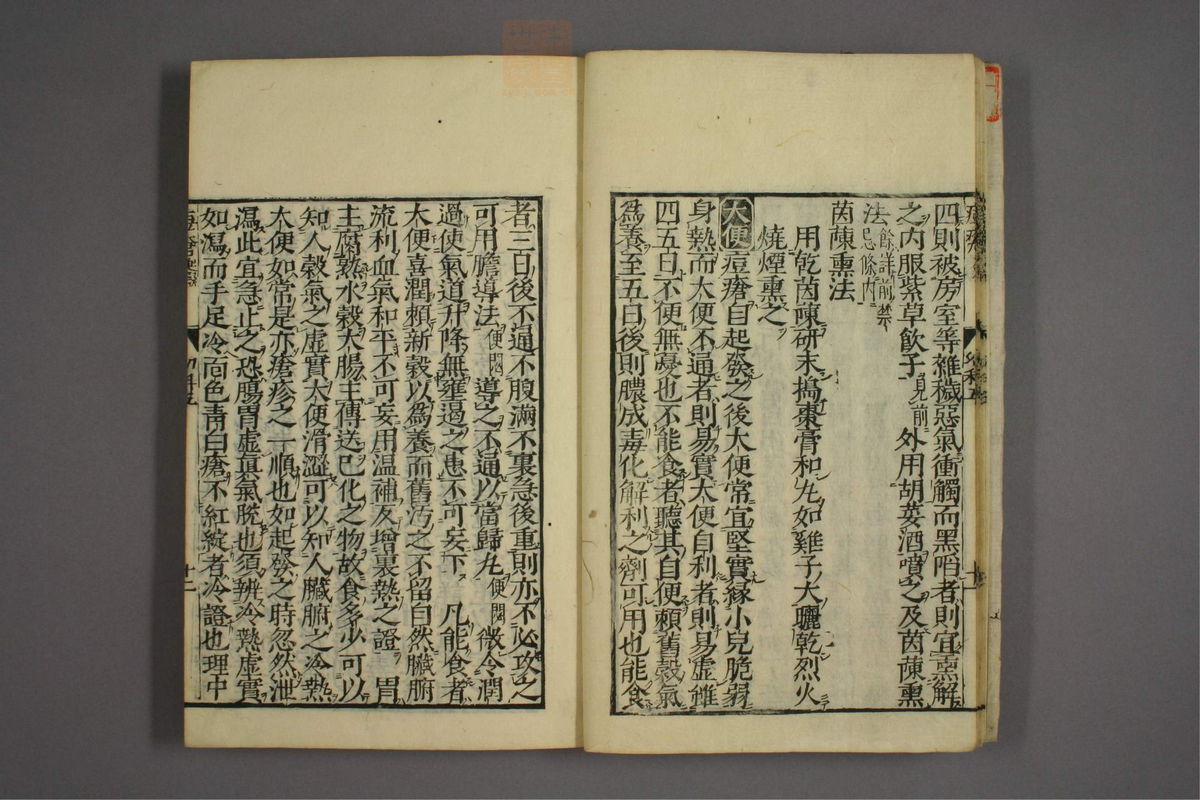 四則被房室等雜穢惡氣衝觸而黑陷者則宜熏解
之内服紫草飲子見前外用胡荽酒噴之及茵蔯熏
法餘詳前禁忌條内
茵蔯熏法
用乾茵蔯研末搗棗膏和丸如雞子大曬乾烈火
燒煙熏之
大便痘瘡自起發之後大便常宜堅實緣小兒脆弱
身熱而大便不通者則易實大便自利者則易虛雖
四五日不便無憂也不能食者聽其自便賴舊穀氣
爲養至五日後則膿成毒化解利之劑可用也能食
者三日後不通不腹滿不裏急後重則亦不必攻之
可用膽導法便閉導之不通以當歸丸便閉微令潤
過使氣道升降無壅遏之患不可妄下 凡能食者
大便喜潤賴新穀以爲養而舊汚之不留自然臟腑
流利血氣和平不可妄用温補反增裏熱之證 胃
主腐熟水穀大腸主傳送已化之物故食多少可以
知人穀氣之虛實大便滑澀可以知人臟腑之冷熱
大便如常是亦瘡疹之一順也如起發之時忽然泄
瀉此宜急止之恐腸胃虛眞氣脫也須辨冷熱虛實
如瀉而手足冷面色青白瘡不紅綻者冷證也理中